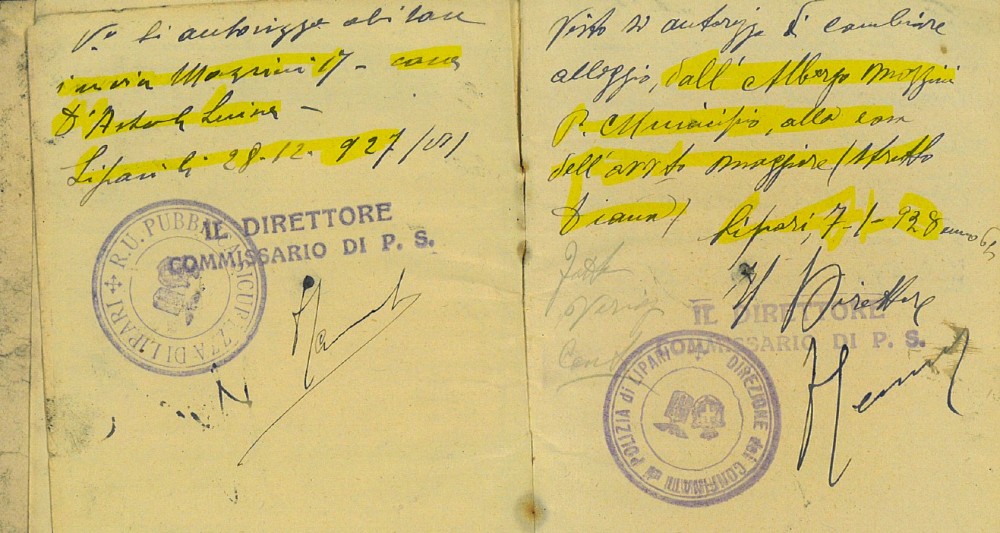 Vº Si autorizza abitare
in via Mazzini 17 - casa
D'
Lipari li 28-12-927 (VI)
IL DIRETTORE
COMMISSARIO DI P. S.
R. U. PUBBLICA SICUREZZA DI LIPARI
Visto si autorizza di cambiare
alloggio, dall' Albergo Mazzini
P. Municipio, alla casa
dell' maggiore (stretto
Diana)
Lipari, 7-1-928 anno 6º
Il Direttore
IL DIRETTORE
COMMISSARIO DI P. S.
DIREZIONE dei CONFINATI di POLIZIA di LIPARI